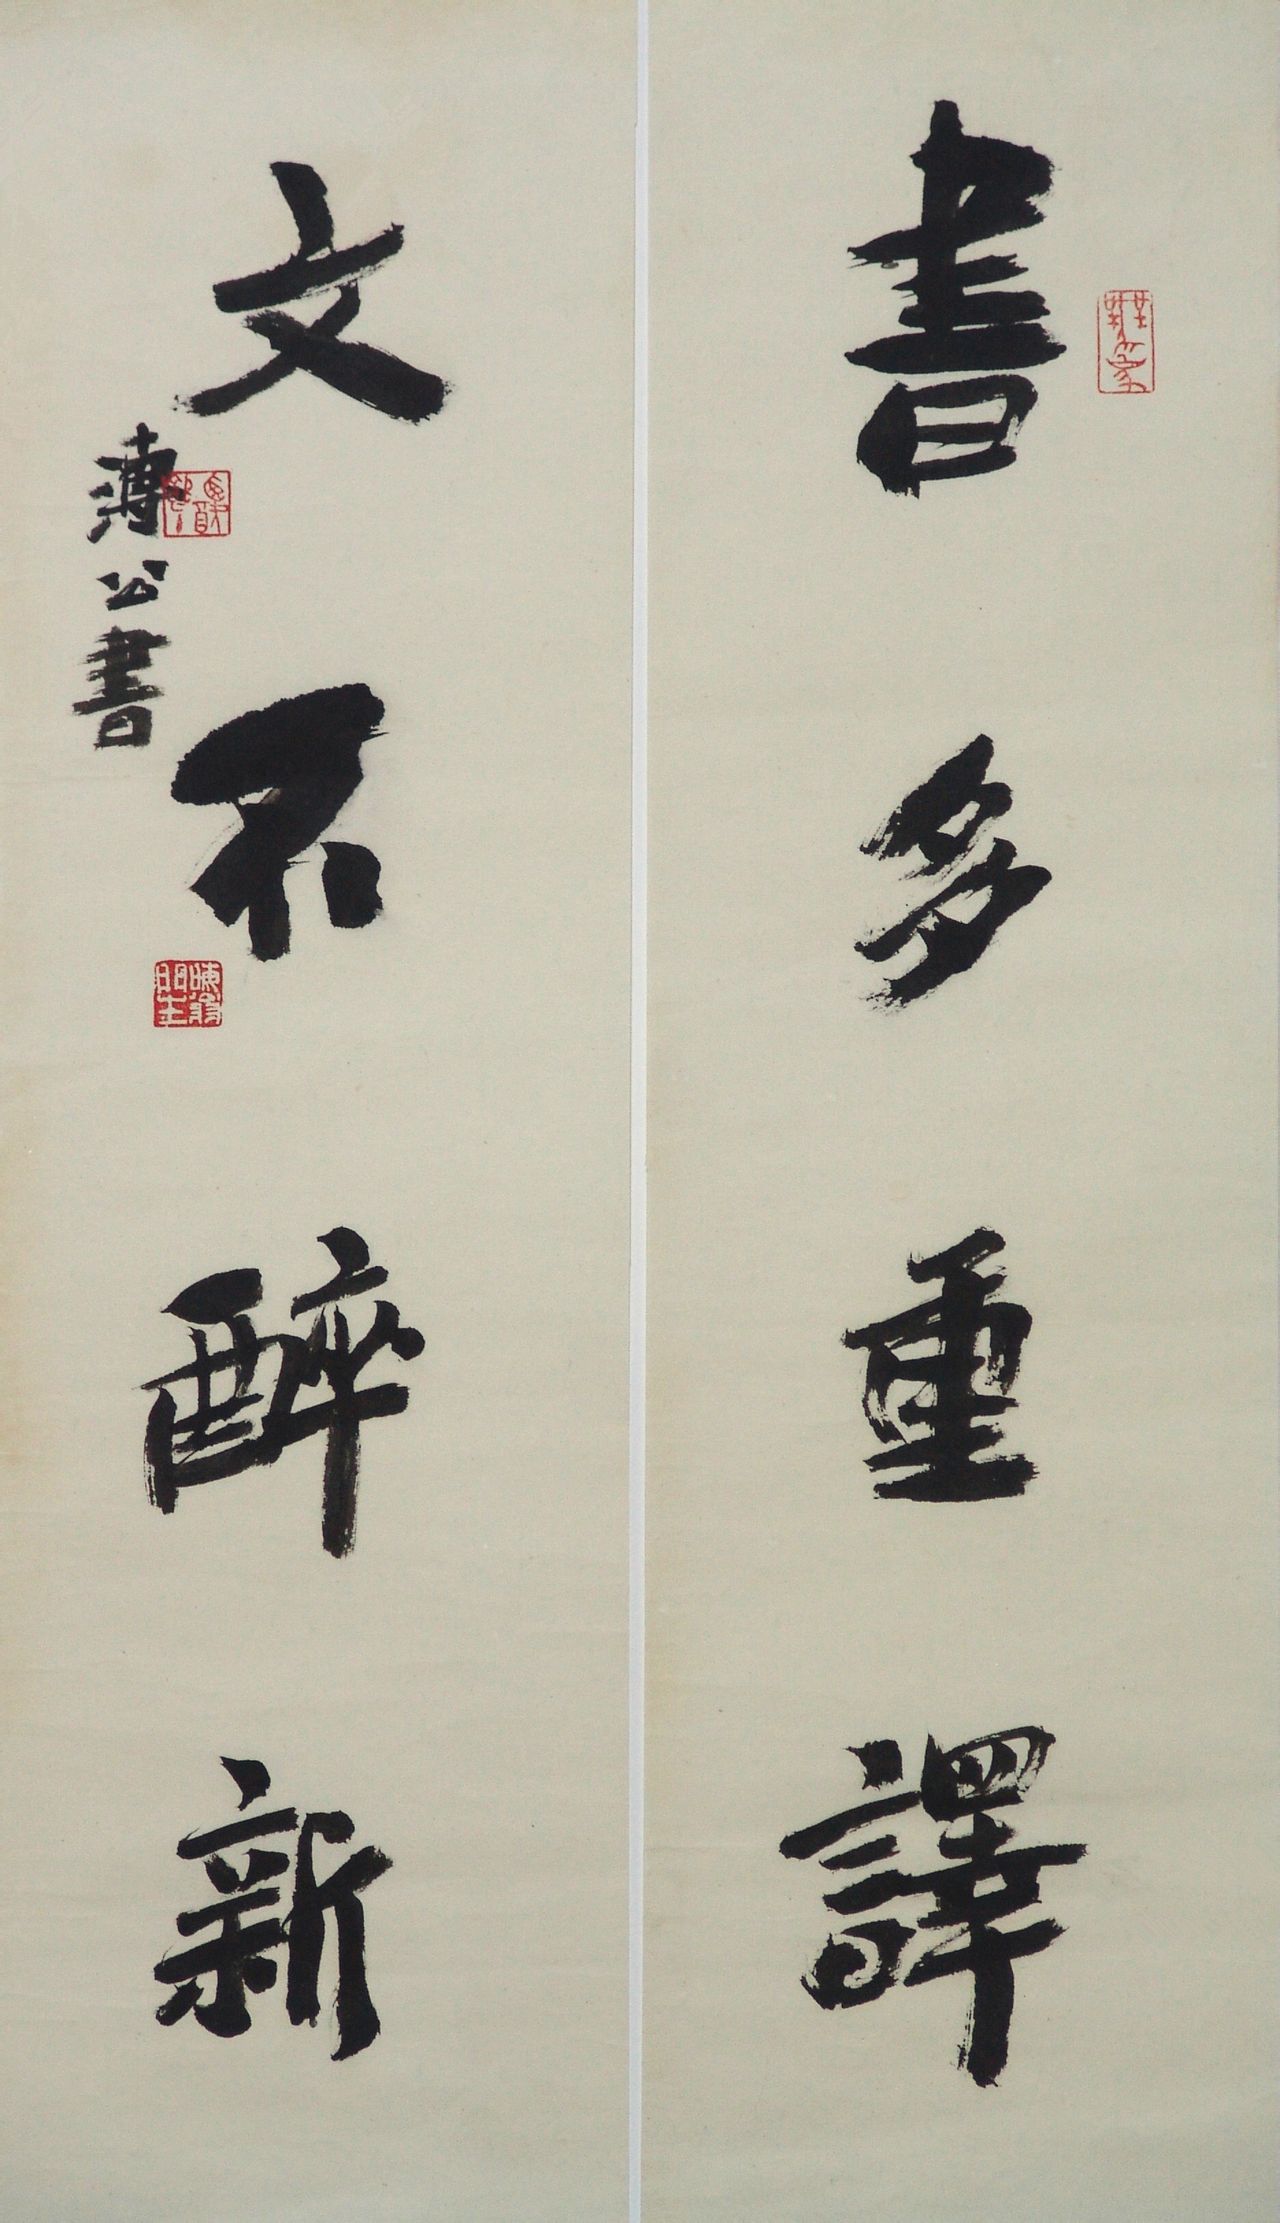 書多重譯
文不醉新
薄公書